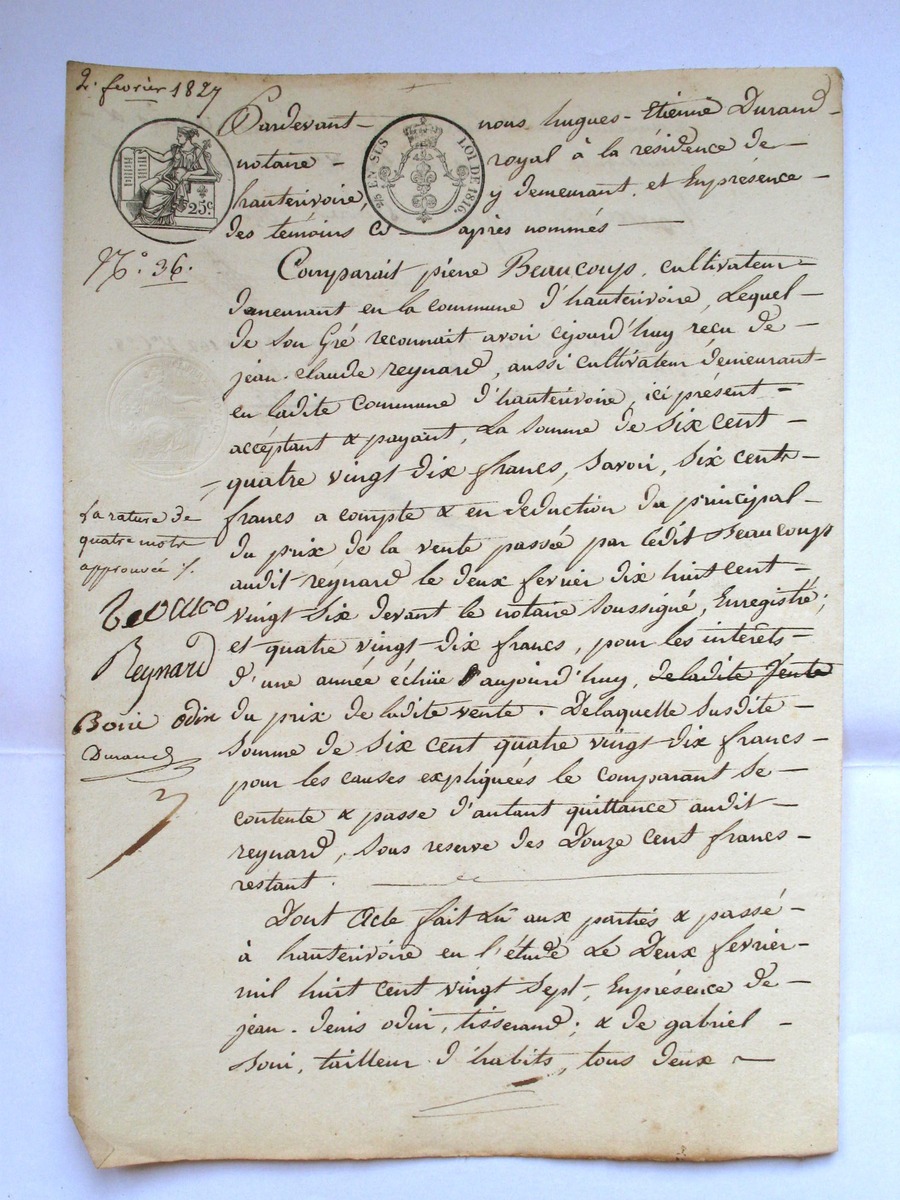 2. fevrier 1827
Pardevant nous hugues-Etienne Durand
notaire royal à la résidence de
hauterivoire, y demeurant, et Enprésence
des témoins ci après nommés
25 EN SUS LOI DE 1816.
25c
No. 36.
Comparait pierre Beaucoup, cultivateur
demeurant en la commune d'hauterivoire, Lequel
de son Gré reconnait avoir cejourd'huy reçu de
jean-claude reynard, aussi cultivateur demeurant
en ladite Commune d'hauterivoire, ici présent
acceptant & payant, La somme de six cent
quatre vingt dix francs, savoir, six cents
francs a compte & en deduction du principal
du prix de la vente passée par ledit Beaucoup
audit reynard le deux fevrier dix huit cent
vingt six devant le notaire soussigné, Enregistré;
et quatre vingt-dix francs, pour les intérêts
d'une année échue d'aujourd'huy, de ladite Vente
du prix de ladite vente. Delaquelle susdite
somme de six cent quatre vingt dix francs
pour les causes expliquées le comparant se
contente & passe d'autant quittance audit
reynard, sous reserve des Douze cent francs
restant.
La rature de
quatre mots
approuvée
Reynard
odin
Durand
Dont Acte fait lû aux parties & passé
à hauterivoire en l'étude Le Deux fevrier
mil huit cent vingt sept, Enprésence de
jean-denis odin, tisserand; & de gabriel
soni, tailleur d'habits, tous deux